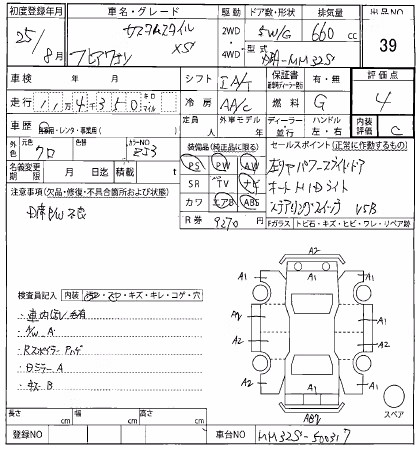 初度登録年月 車名・グレード 駆動 ドア数・形状 排気量 出品NO
25年8月 カスタムスタイル XS 2WD 5W/G 660cc 39
フレアワゴン 4WD 型式 MM32S
車検 年 月 シフト IA/T 保証書 有・無 評価点
走行 114350 キロ マイル 冷房 AA/C 燃料 G 4
車歴 自家用・レンタ・事業用( ) 定員 人 外車モデル 年 ディーラー 並行 ハンドル 左・右 内装評価 C
外色 元色 クロ カラーNO ZJ3 装備品(純正品に限る) セールスポイント(正常に作動するもの)
名義変更期限 月 日 積載 t PS PW AW 左リヤパワースライドドア
注意事項(欠品・修復・不具合箇所および状態) SR TV ナビ オートHIDライト
カワ エアB ABS ステアリングスイッチ USB
R券 9270円 Fガラス トビ石・キズ・ヒビ・ワレ・リペア跡
検査員記入 内装 汚レ・スレ・キズ・キレ・コゲ・穴
A2
A1 A1
A2 A1 A1
A2 A1 A2
A1 A1
・A/W A
・Rスポイラー
・Dミラー A
・B
スペア
長さ cm 幅 cm 高さ cm
登録NO 車台NO MM32S-500317